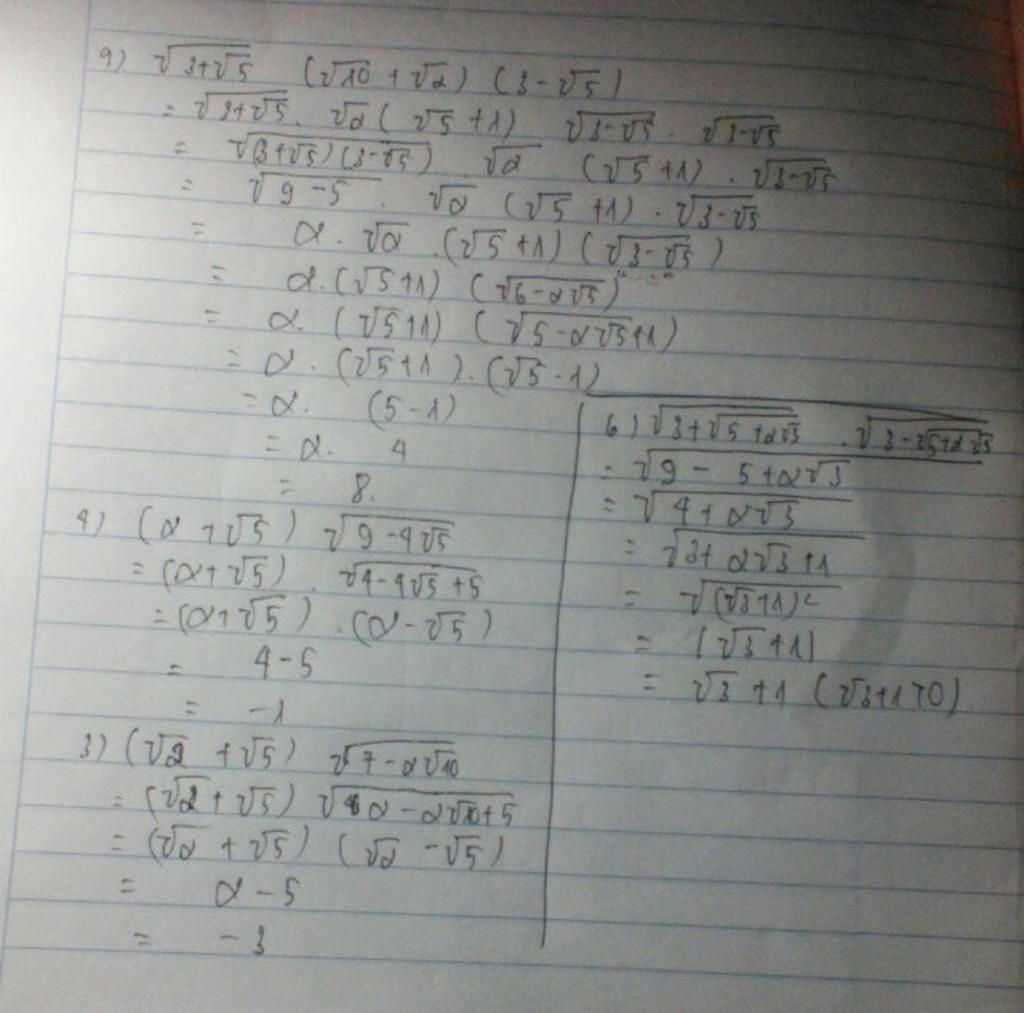 9) √(3+√5) (√10 + √2) (3 - √5)
= √(3+√5) . √2 ( √5 + 1) √(3-√5) . √(3-√5)
= √((3+√5)(3-√5)) √2 (√5 + 1) . √(3-√5)
= √(9 - 5) . √2 (√5 + 1) . √(3-√5)
= 2 . √2 . (√5 + 1) (√(3-√5))
= 2. (√5+1) (√(6-2√5))
= 2. (√5+1) (√(5-2√5+1))
= 2 . (√5+1) . (√5 - 1)
= 2. (5 - 1)
= 2. 4
= 8.
4) (2 + √5) √(9-4√5)
= (2+√5) . √(4-4√5+5)
= (2+√5) . (2-√5)
= 4 - 5
= -1
3) (√2 + √5) √(7-2√10)
= (√2+√5) √(2-2√10+5)
= (√2 + √5) (√2 - √5)
= 2 - 5
= - 3
6) √(3+√(5+2√3)) . √(3-√(5+2√3))
= √(9 - 5+2√3)
= √(4+2√3)
= √(3+2√3+1)
= √((√3+1)²)
= |√3+1|
= √3 + 1 (√3+1>0)